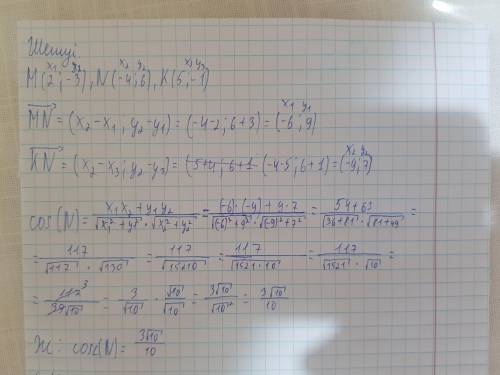 Шешуі
M(2;-3), N(-4;6), K(5;-1)
MN = (x₂-x₁, y₂-y₁) = (-4-2; 6+3) = (-6; 9)
KN = (x₂-x₃; y₂-y₃) = (5+4; 6+1 (-4-5; 6+1) = (-9; 7)
cos(N) = x₁x₂+y₁y₂ / √x₁²+y₁² · √x₂²+y₂² = (-6)·(-9)+9·7 / √(-6)²+9² · √(-9)²+7² = 54+63 / √36+81 · √81+49 =
= 117 / √117 · √130 = 117 / √15210 = 117 / √1521·10 = 117 / √1521 · √10 =
= 117³ / 39√10 = 3 / √10 · √10 / √10 = 3√10 / √10² = 3√10 / 10
Ж: cos(N) = 3√10 / 10